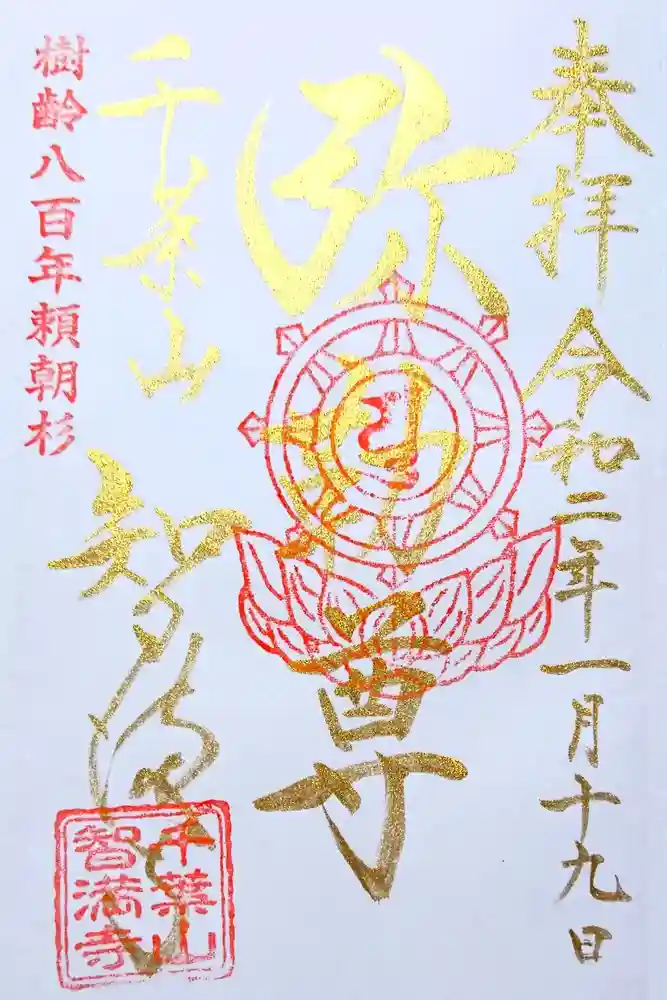 奉拝 令和二年一月十九日
弥勒尊
千葉山
智満寺
樹齢八百年頼朝杉
千葉山
智満寺